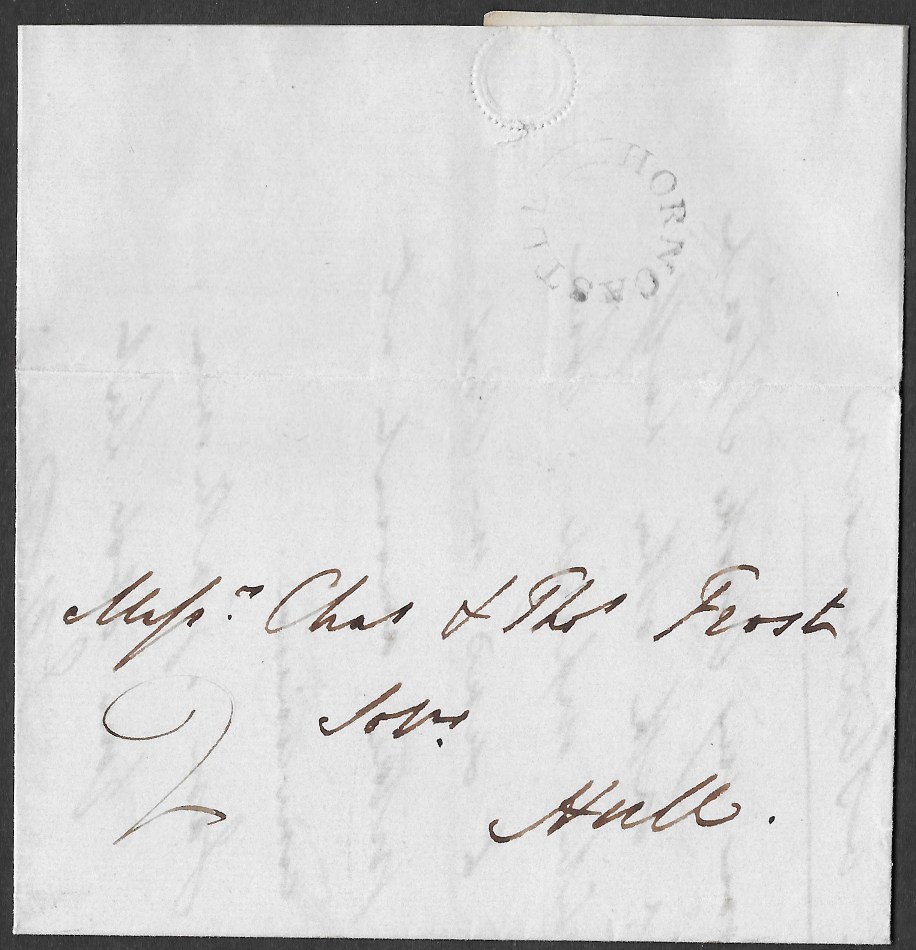 HORNCASTLE
Messrs. Chas & Thos Frost
Solrs.
Hull.
2